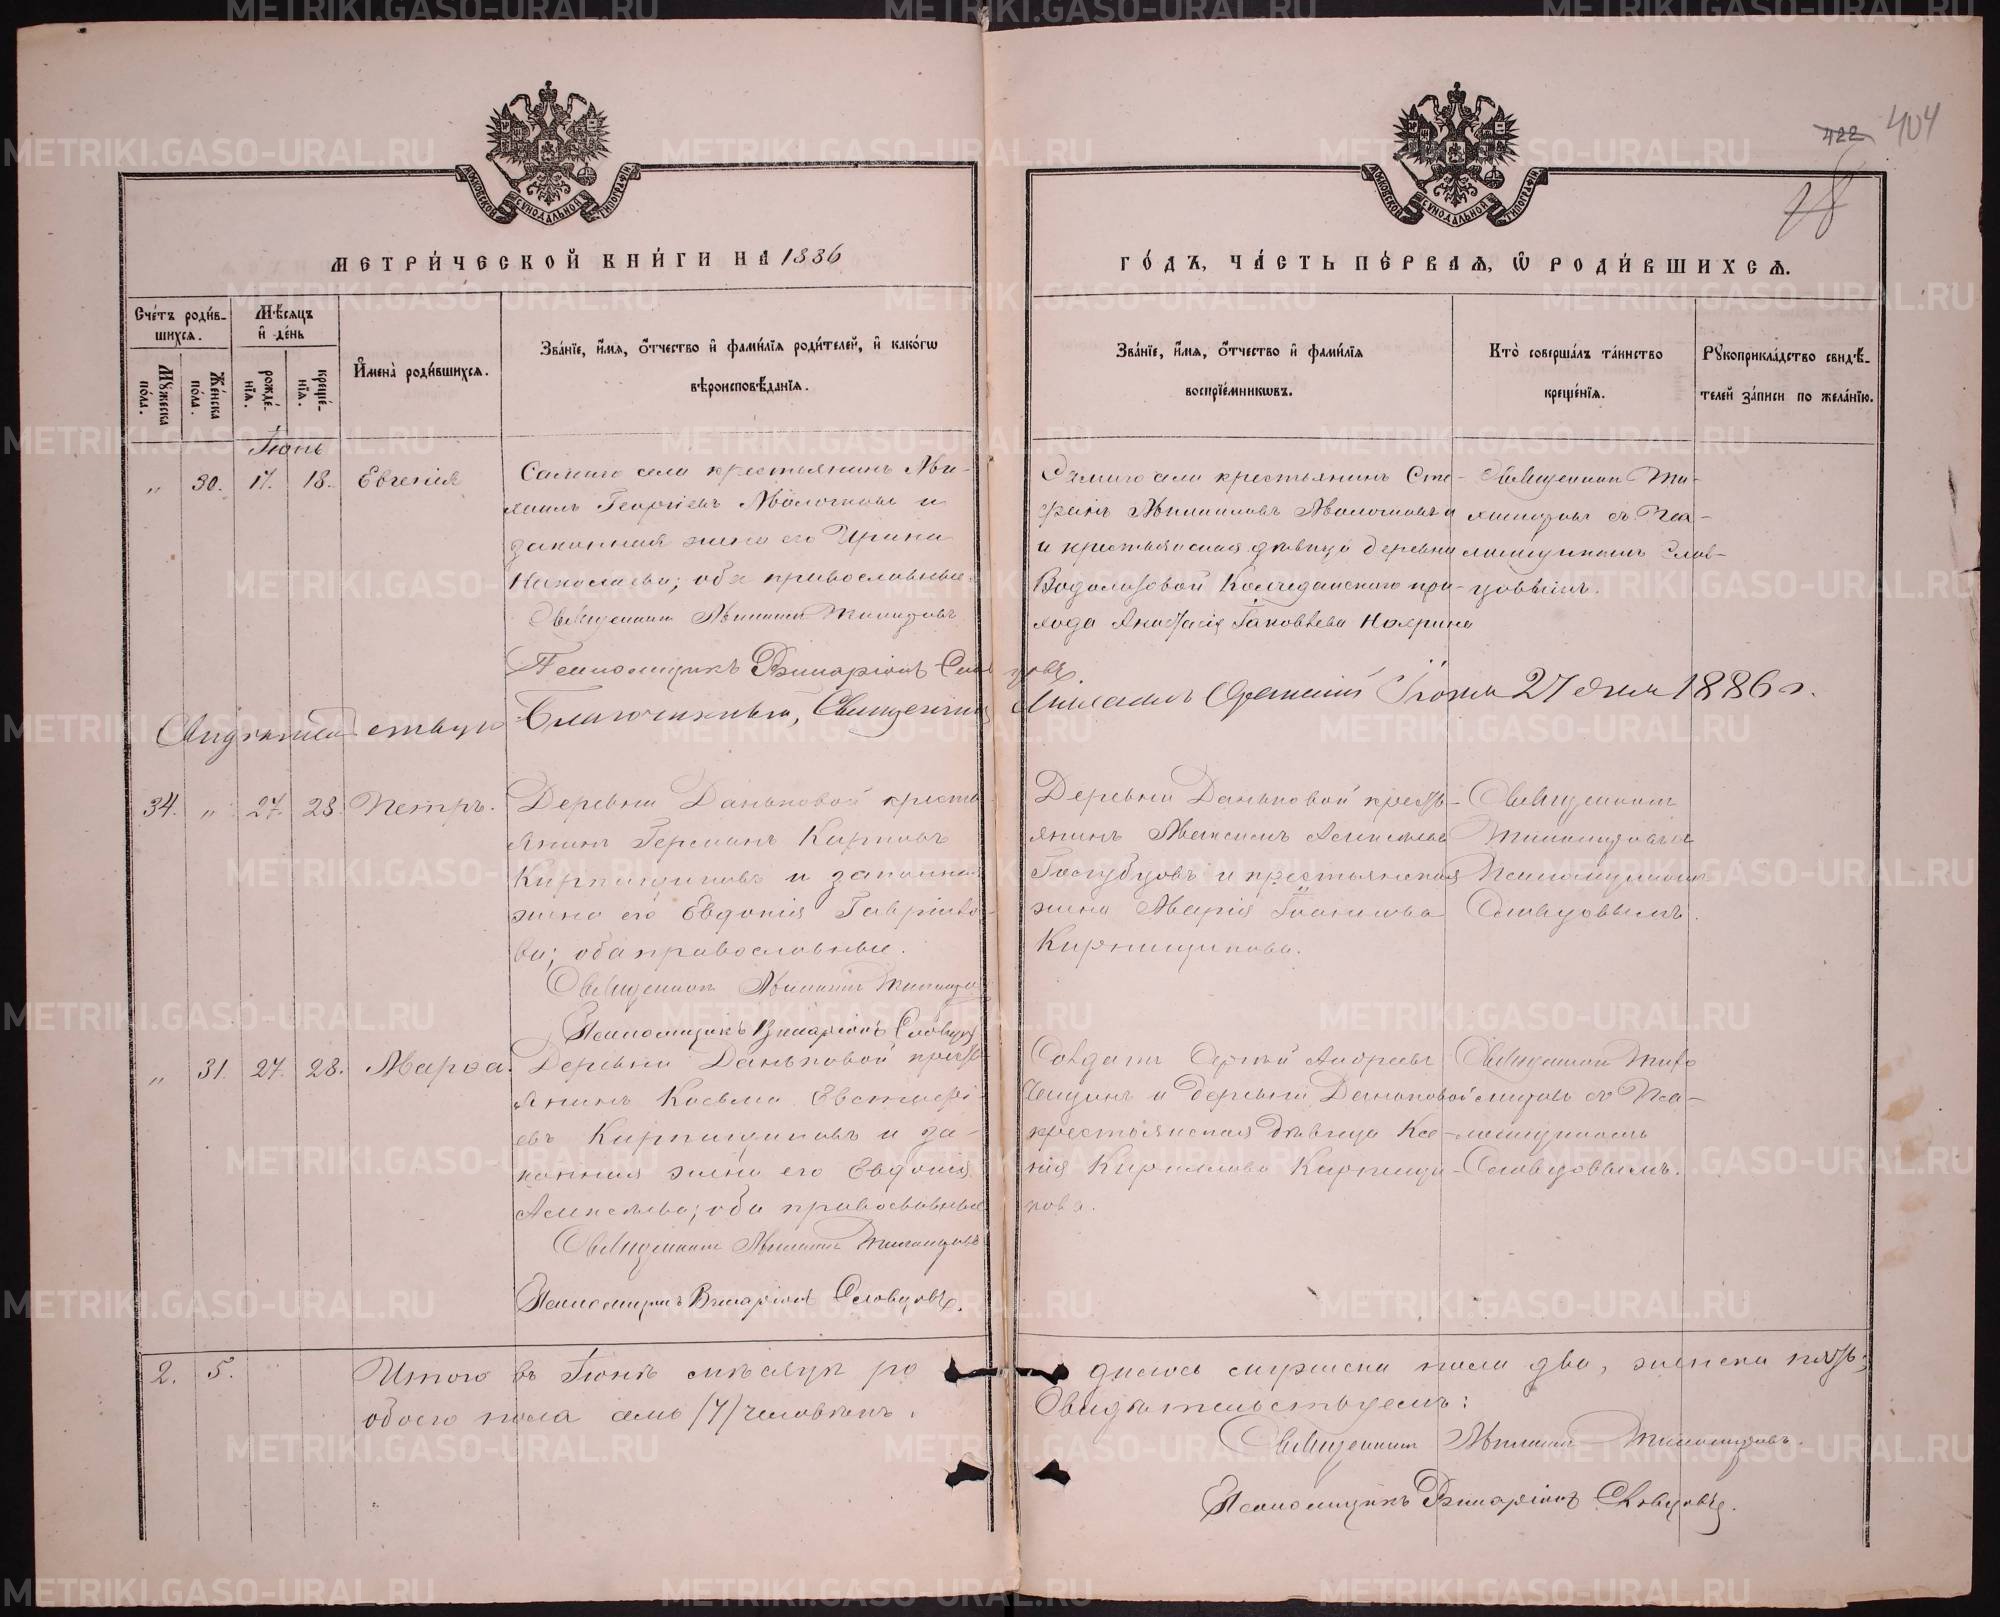 422 404
78
МЕТРИ́ЧЕСКОЙ КНИ́ГИ НА 1886
ГО́ДЪ, ЧА́СТЬ ПЕ́РВАѦ, Ѽ РОДИ́ВШИХСѦ.
Сче́тъ роди́в-
шихсѧ.
Мꙋ́жеска по́ла.
Же́нска по́ла.
Мѣ́сѧцъ и де́нь
рожде́нїѧ.
креще́нїѧ.
Имена̀ роди́вшихсѧ.
Зва́нїе, и́мѧ, о́тчество и фами́лїѧ роди́телей, и како́гѡ
вѣроисповѣ́данїѧ.
Зва́нїе, и́мѧ, о́тчество и фами́лїѧ
воспрїе́мникѡвъ.
Кто̀ соверша́лъ та́инство
креще́нїѧ.
Рꙋкоприкла́дство свидѣ́-
телей за́писи по жела́нїю.
Іюнь
" 30. 17. 18. Евгенія
Самаго села крестьянинъ Ми-
хаилъ Георгіевъ и
законная жена его Ирина
Николаева; оба православные.
Священникъ Тихомировъ
Псаломщикъ Словцовъ
Самаго села крестьянинъ Сте-
фанъ
и крестьянская дѣвица деревни
Водолазовой Колчеданскаго при-
хода Анастасія Іаковлева
Священникъ Ти-
хомировъ съ Пса-
ломщикомъ Слов-
цовымъ.
Благочинный, Священникъ 27 дня 1886 г.
34. " 27. 28. Петръ.
Деревни Даньковой кресть-
янинъ Германъ Карповъ
Кирпищиковъ и законная
жена его Евдокія Гаврило-
ва; оба православные.
Священникъ Тихомировъ
Псаломщикъ Словцовъ
Деревни Даньковой кресть-
янинъ Максимъ Алексѣевъ
Голубцовъ и крестьянская
жена Марія
Кирпищикова.
Священникомъ
Тихомировымъ
Псаломщикомъ
Словцовымъ.
" 31. 27. 28. Марѳа.
Деревни Даньковой кресть-
янинъ Косьма Евстафі-
евъ Кирпищиковъ и за-
конная жена его Евдокія
Алексѣева; оба православные
Священникъ Тихомировъ
Псаломщикъ Словцовъ.
Солдатъ Сергѣй Андреевъ
и деревни Даньковой
крестьянская дѣвица Ксе-
нія Кириллова Кирпищи-
кова.
Священникъ Тихо-
мировъ съ Пса-
ломщикомъ
Словцовымъ.
2. 5. Итого въ Іюнѣ мѣсяцѣ ро
дилось мужеска пола два, женска пять;
обоего пола семь /7/ человѣкъ.
Свидѣтельствуемъ:
Священникъ Тихомировъ.
Псаломщикъ Словцовъ.
METRIKI.GASO-URAL.RU